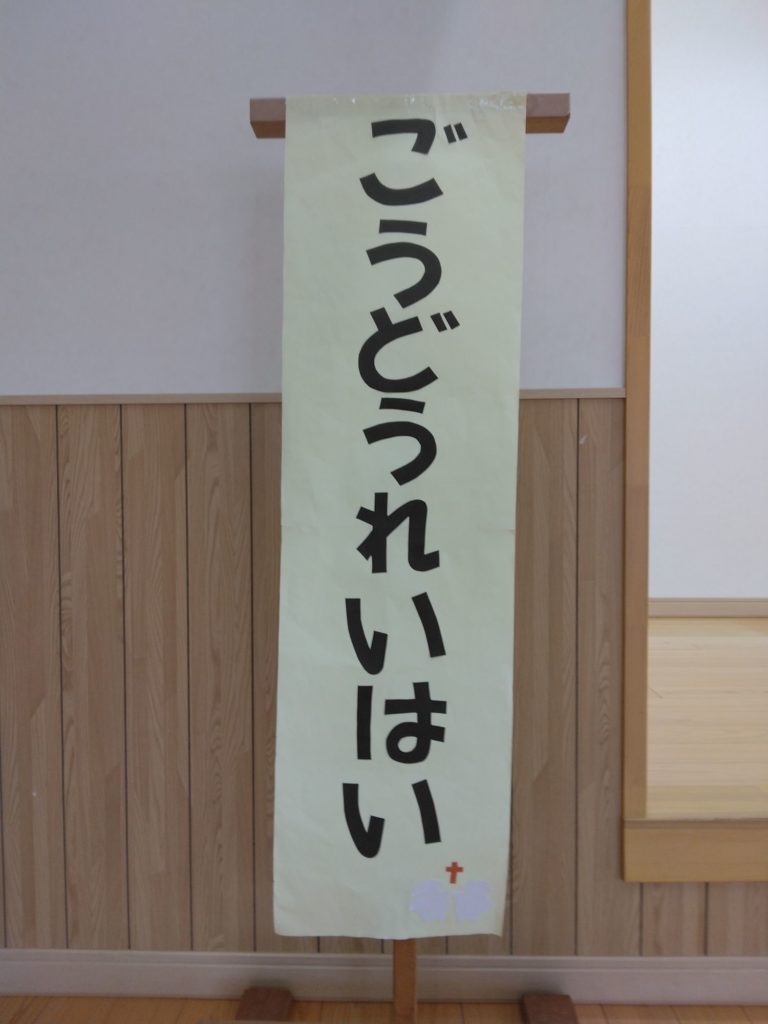 ごうどうれいはい